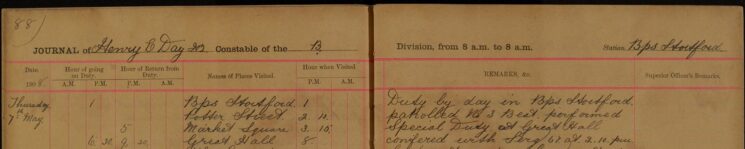 88)
JOURNAL of Henry C Day Constable of the B Division, from 8 a.m. to 8 a.m. Station Bps Stortford
Date. Hour of going on Duty. Hour of Return from Duty. Names of Places Visited. Hour when Visited. REMARKS, &c. Superior Officer's Remarks.
1908. A.M. P.M. A.M. P.M. P.M. A.M.
Thursday 1 Bps Stortford 1 Duty by day in Bps Stortford
7th May Potter Street 2 patrolled No 3 Beat. performed
5 Market Square 3 15 Special Duty at Great Hall
6 30 9 30 Great Hall 8 confered with Serg 67 at 2.10 pm